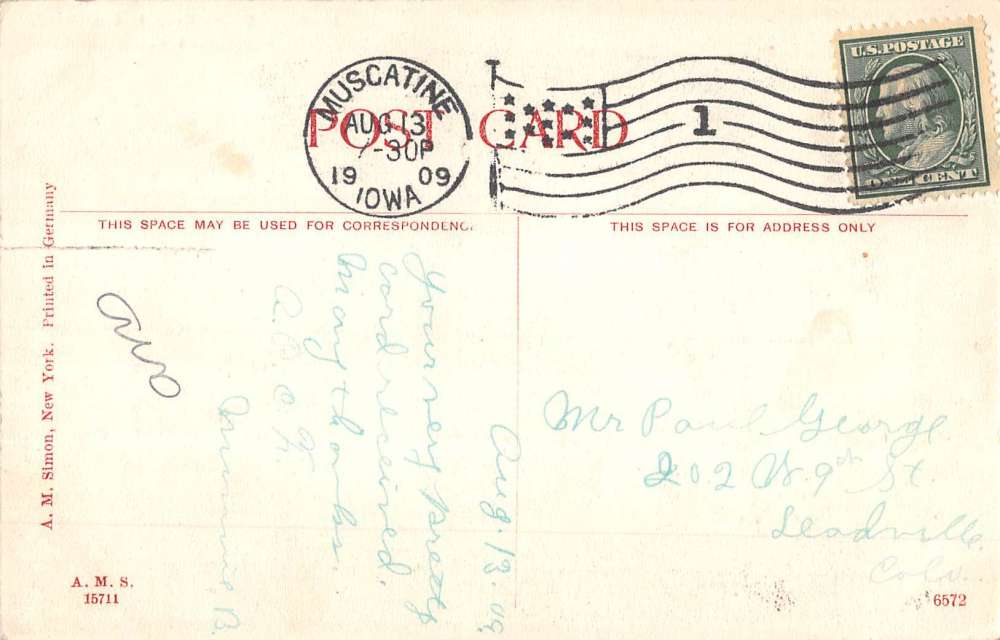 U.S. POSTAGE
ONE CENT
MUSCATINE
AUG 13
7-30P
19 09
IOWA
1
POST CARD
THIS SPACE MAY BE USED FOR CORRESPONDENC
THIS SPACE IS FOR ADDRESS ONLY
A. M. Simon, New York. Printed in Germany
Aug. 13. 09.
Your very pretty
card received.
Many thanks.
Minnie B.
Mr Paul George
202 W. 9th St.
Leadville
Colo.
A. M. S.
15711
6572